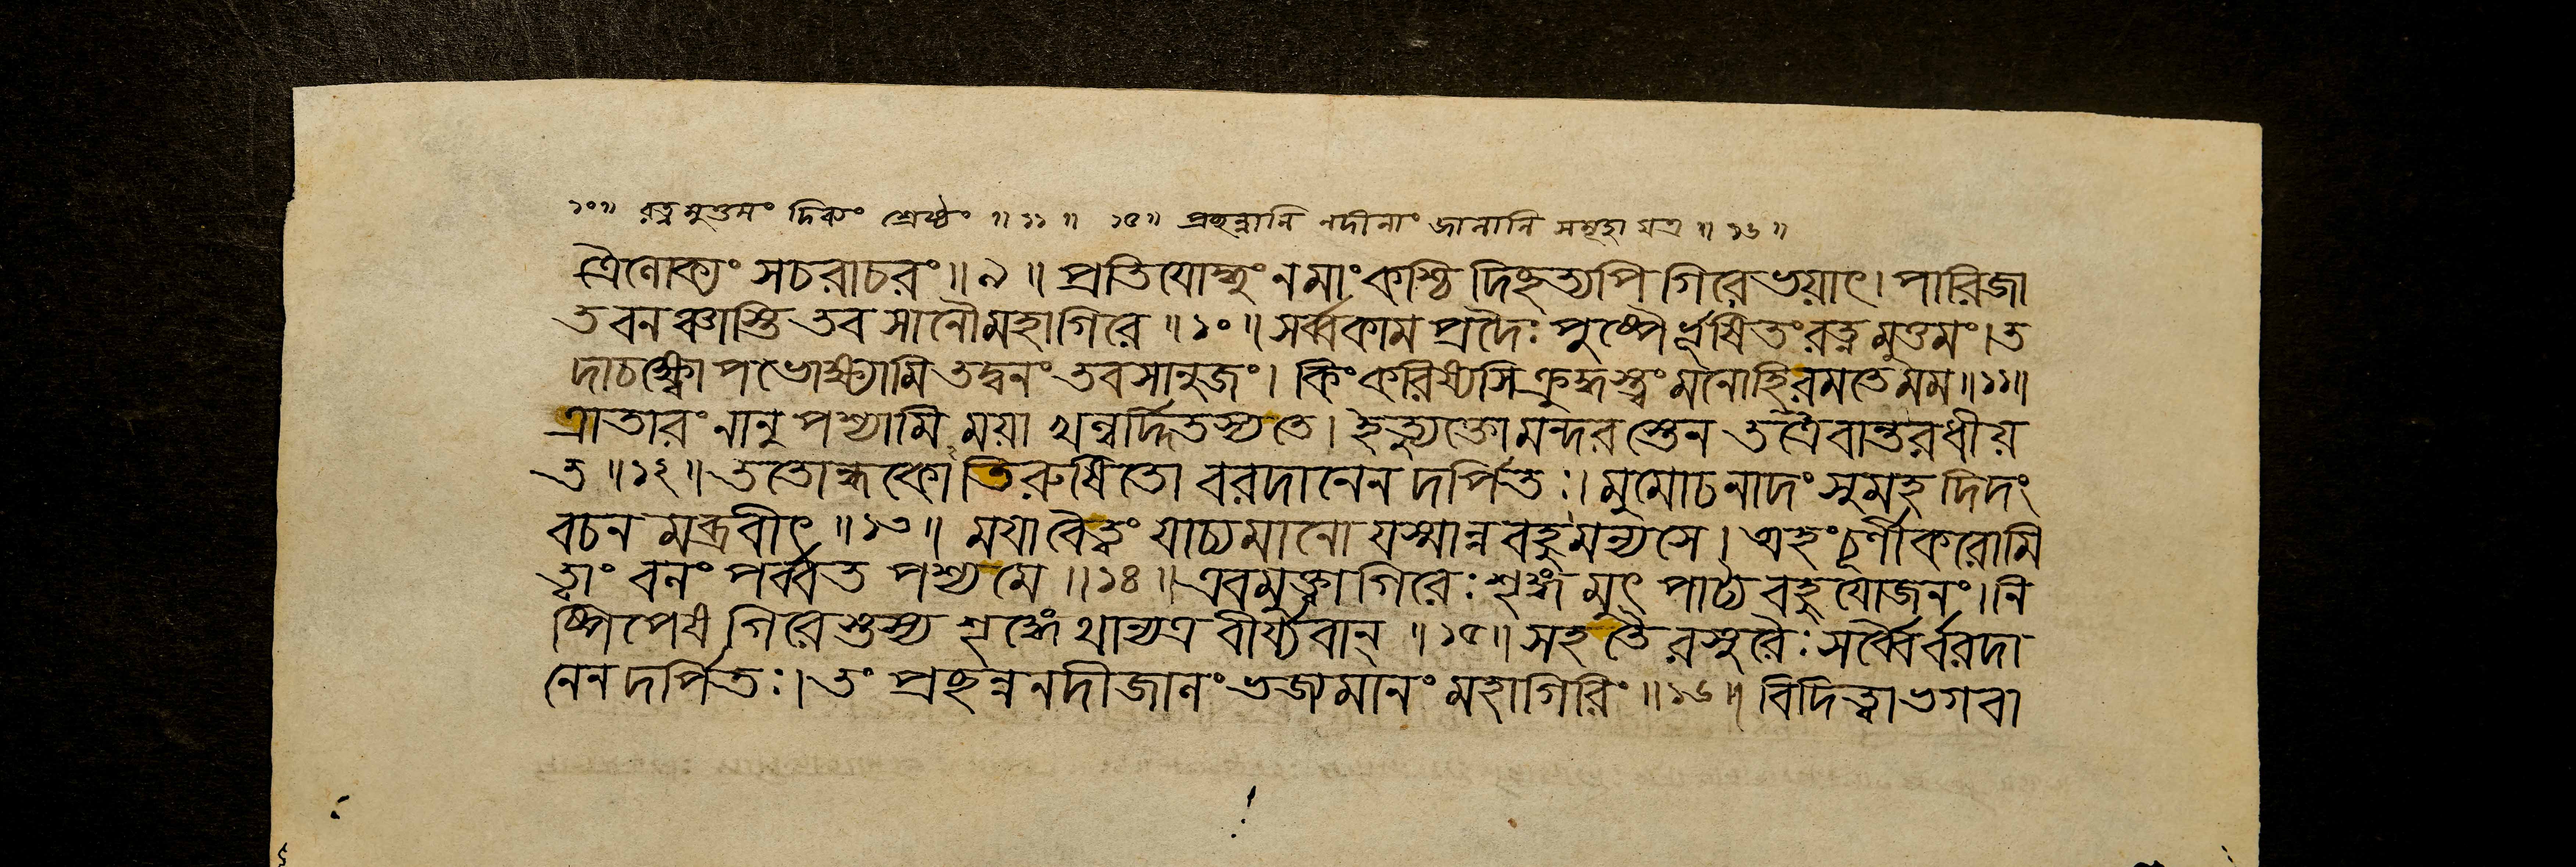 ১০॥ রত্নমুত্তমং দিব্যং শ্রেষ্ঠং ॥ ১১ ॥ ১৫॥ প্রচ্ছন্নানি নদীনাং জালানি সমূহা যত্র ॥ ১৬ ॥
ত্রৈলোক্যং সচরাচরং॥ ৯ ॥ প্রতিযোদ্ধুং ন মাং কশ্চিদিচ্ছত্যপি গিরে ভয়াৎ। পারিজা
তবনঞ্চাস্তি তব সানৌ মহাগিরে ॥ ১০ ॥ সর্ব্বকামপ্রদৈঃ পুষ্পৈর্ভূষিতং রত্নমুত্তমং। ত
দাচক্ষ্বোপভোক্ষ্যামি তদ্বনং তব সানুজং। কিং করিষ্যসি ক্রুদ্ধস্ত্বং মনো হি রমতে মম॥ ১১॥
ত্রাতারং নানুপশ্যামি ময়া খল্বর্দ্দিতস্য তে। ইত্যুক্তো মন্দরস্তেন তত্রৈবান্তরধীয়
ত ॥ ১২ ॥ ততোন্ধকোতিরুষিতো বরদানেন দর্পিতঃ। মুমোচ নাদং সুমহদিদং
বচনমব্রবীৎ ॥ ১৩ ॥ ময়া বৈ ত্বং যাচ্যমানো যস্মান্ন বহুমন্যসে। অহং চূর্ণীকরোমি
ত্বাং বলং পর্ব্বত পশ্য মে ॥ ১৪ ॥ এবমুক্ত্বা গিরেঃ শৃঙ্গমুৎপাট্য বহুযোজনং। নি
ষ্পিপেষ গিরেস্তস্য শৃঙ্গেথান্যত্র বীর্য্যবান্ ॥ ১৫॥ সহ তৈরসুরৈঃ সর্ব্বৈর্বরদা
নেন দর্পিতঃ। তং প্রচ্ছন্ননদীজালং ভজ্যমানং মহাগিরিং ॥ ১৬ ॥ বিদিত্বা ভগবা